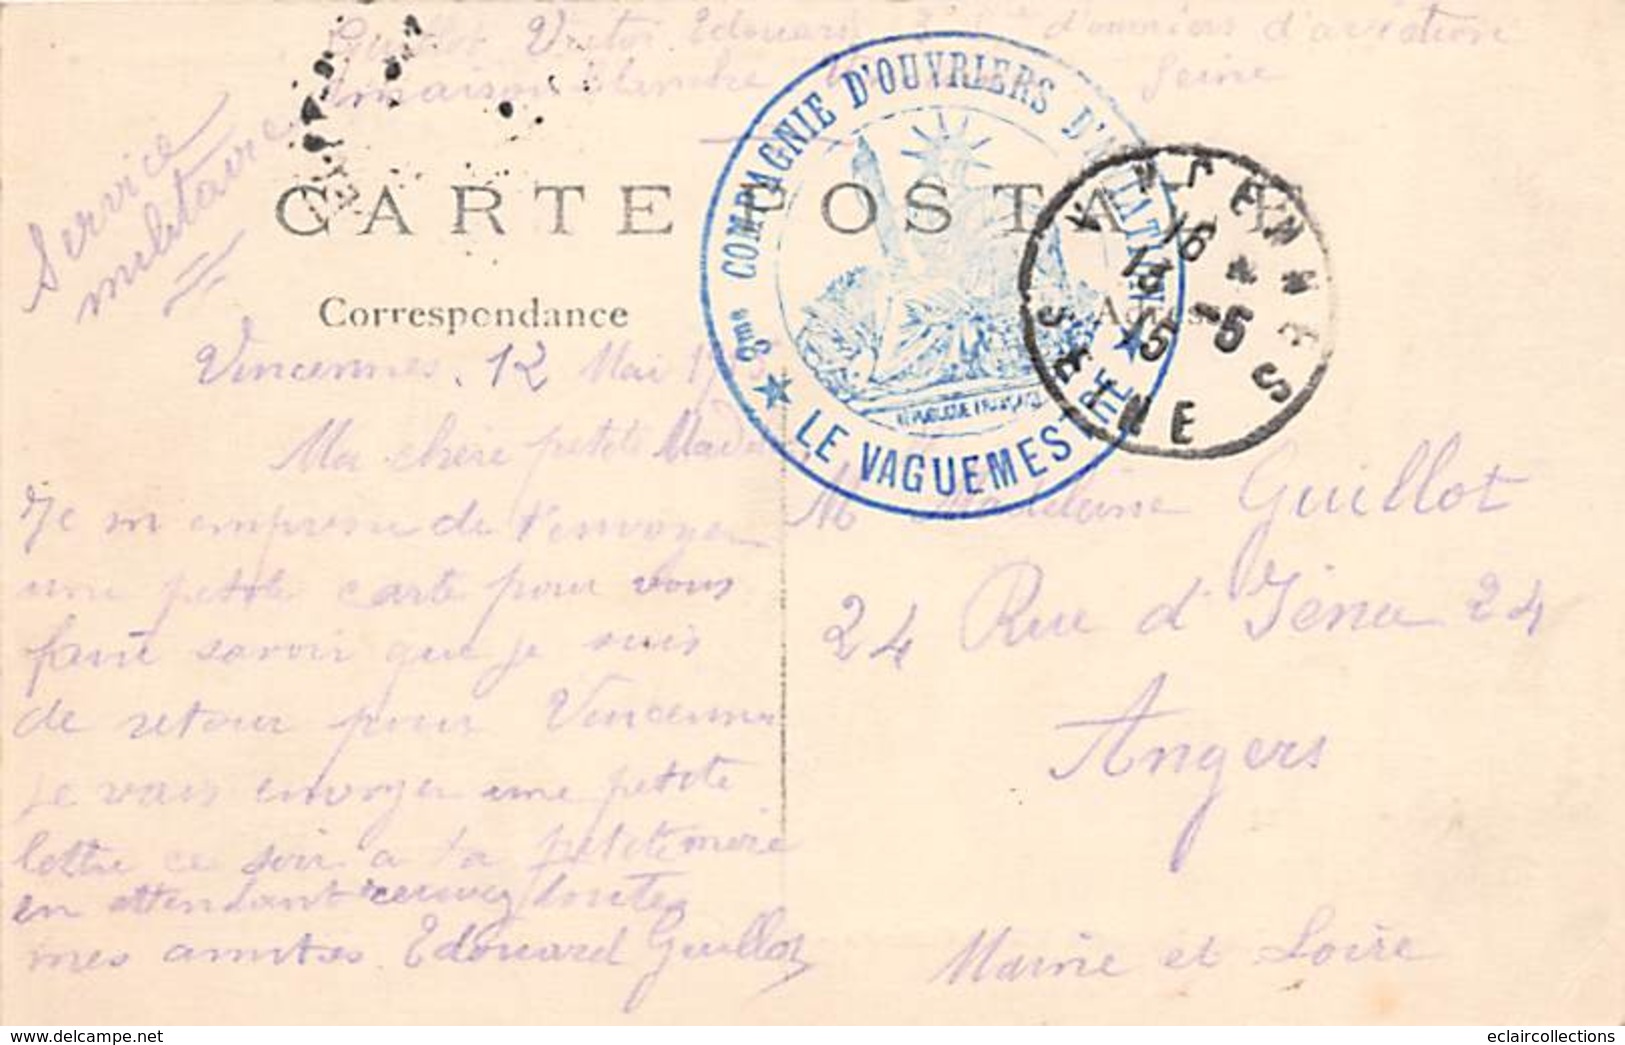 Guillot Victor Edouard 3e Cie d'ouvriers d'aviation
maison Blanche Seine
Service
militaire
3me COMPAGNIE D'OUVRIERS D'AVIATION
LE VAGUEMESTRE
RÉPUBLIQUE FRANÇAISE
VINCENNES
16
13 -5
15
SEINE
CARTE POSTALE
Correspondance
Adresse
Vincennes, 12 Mai
Ma chère petite
Je m empresse de t'envoyer
une petite carte pour vous
faire savoir que je suis
de retour pour Vincennes
Je vais envoyer une petite
lettre ce soir a ta petite mère
en attendant recevez toutes
mes amitiés Edouard Guillot
M Madeleine Guillot
24 Rue d'Iéna 24
Angers
Maine et Loire
eclaircollections